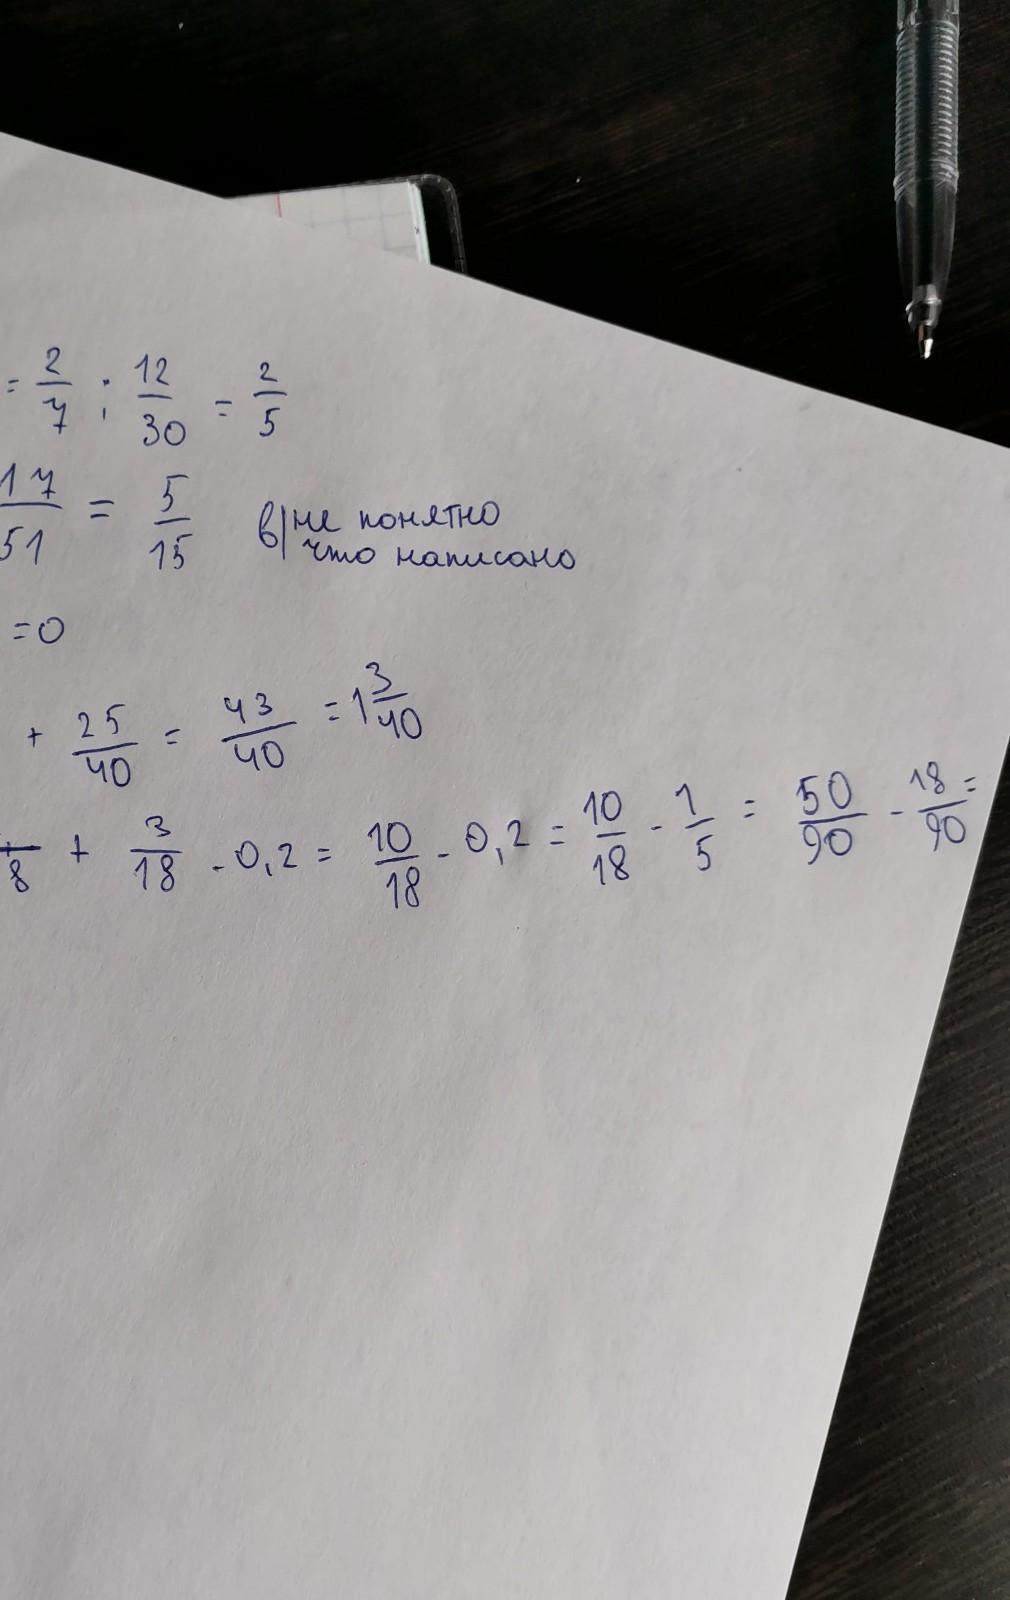 = 2/7 : 12/30 = 2/5
17/51 = 5/15 в) не понятно
что написано
= 0
+ 25/40 = 43/40 = 1 3/40
/8 + 3/18 - 0,2 = 10/18 - 0,2 = 10/18 - 1/5 = 50/90 - 18/90 =